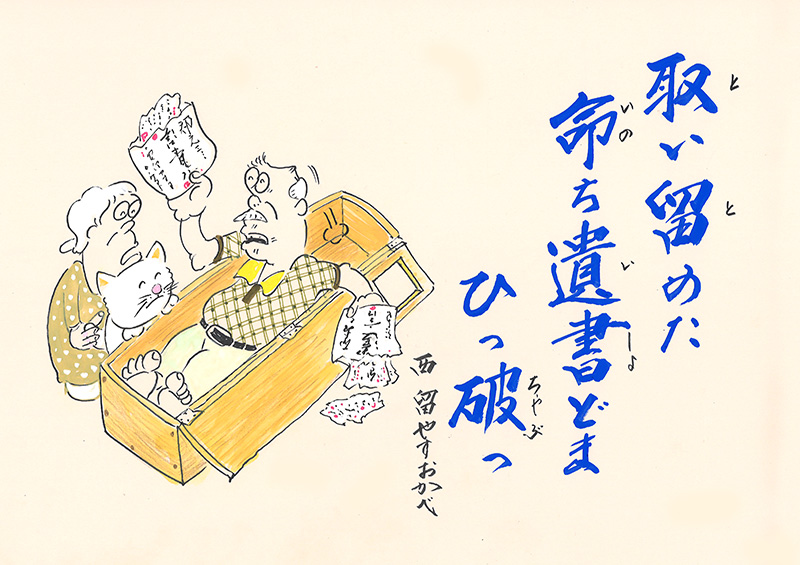 取い留めた
と と
命ち遺書どま
いの いしよ
ひっ破っ
ちやぶ
西 留やすおかべ